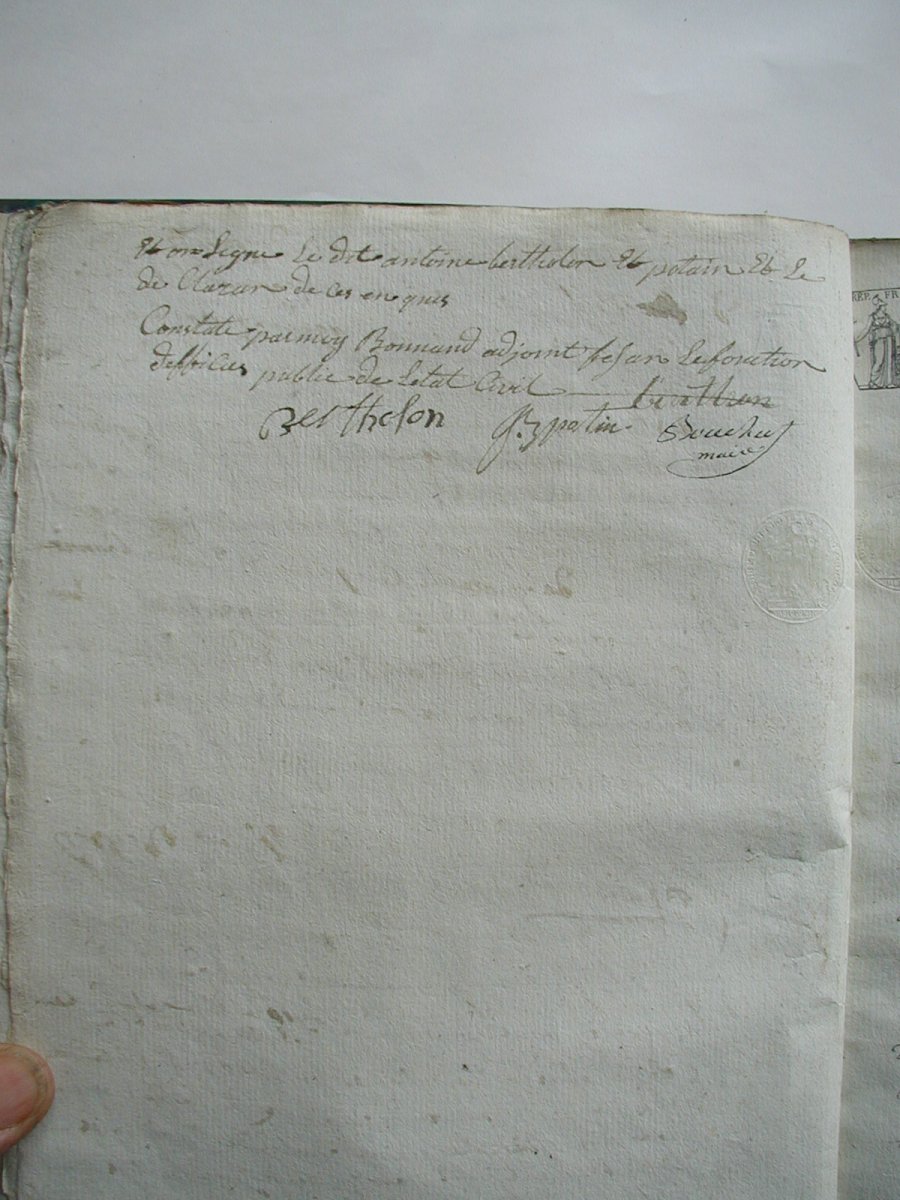 et on Signe Le dit antoine bertholon et potain et Le
de Claran de ces en quis
Constate par moy Bonnand adjoint fesan Lesfonction
dofficier public de Letat Civil
Berthelon
potin
maire
REP. FR